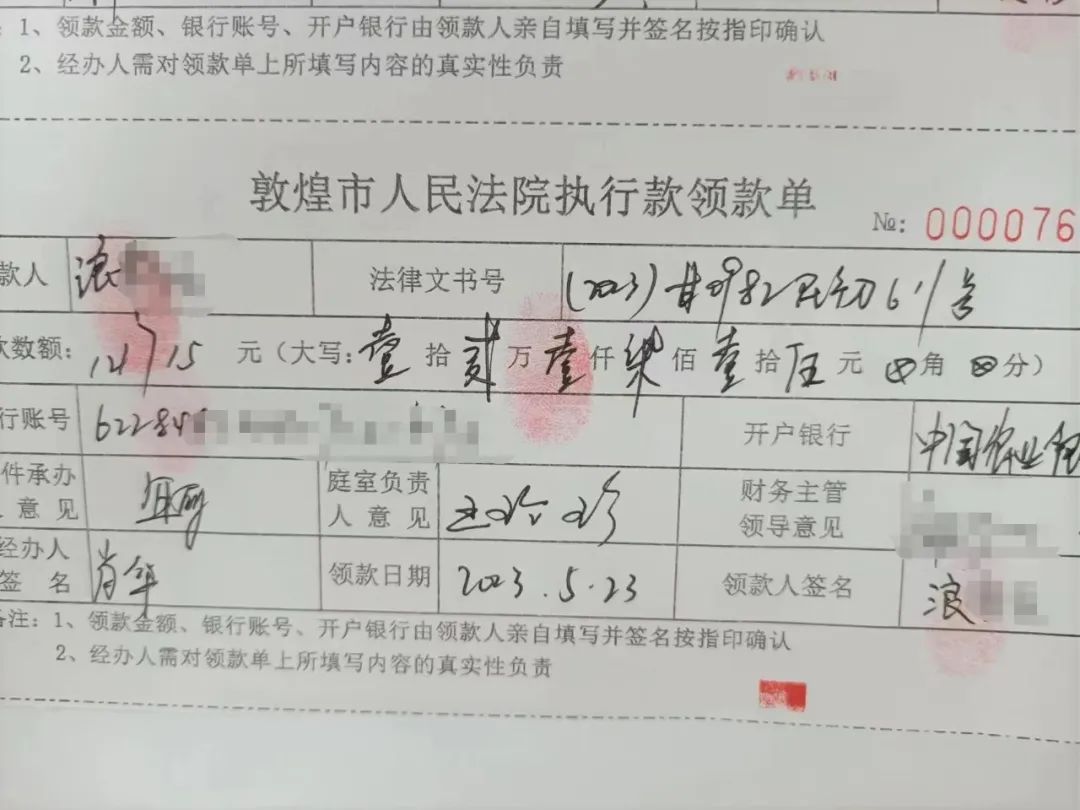 ：1、领款金额、银行账号、开户银行由领款人亲自填写并签名按指印确认
2、经办人需对领款单上所填写内容的真实性负责
敦煌市人民法院执行款领款单
№: 000076
款人 浪 法律文书号 (2023)甘0982民初61号
数额: 121715 元（大写: 壹拾贰万壹仟柒佰壹拾伍元 ⊗角 ⊗分）
行账号 62284 开户银行 中国农业银
件承办 庭室负责 财务主管
意见 人意见 领导意见
经办人 领款日期 2023.5.23 领款人签名 浪
签名 肖华
备注: 1、领款金额、银行账号、开户银行由领款人亲自填写并签名按指印确认
2、经办人需对领款单上所填写内容的真实性负责